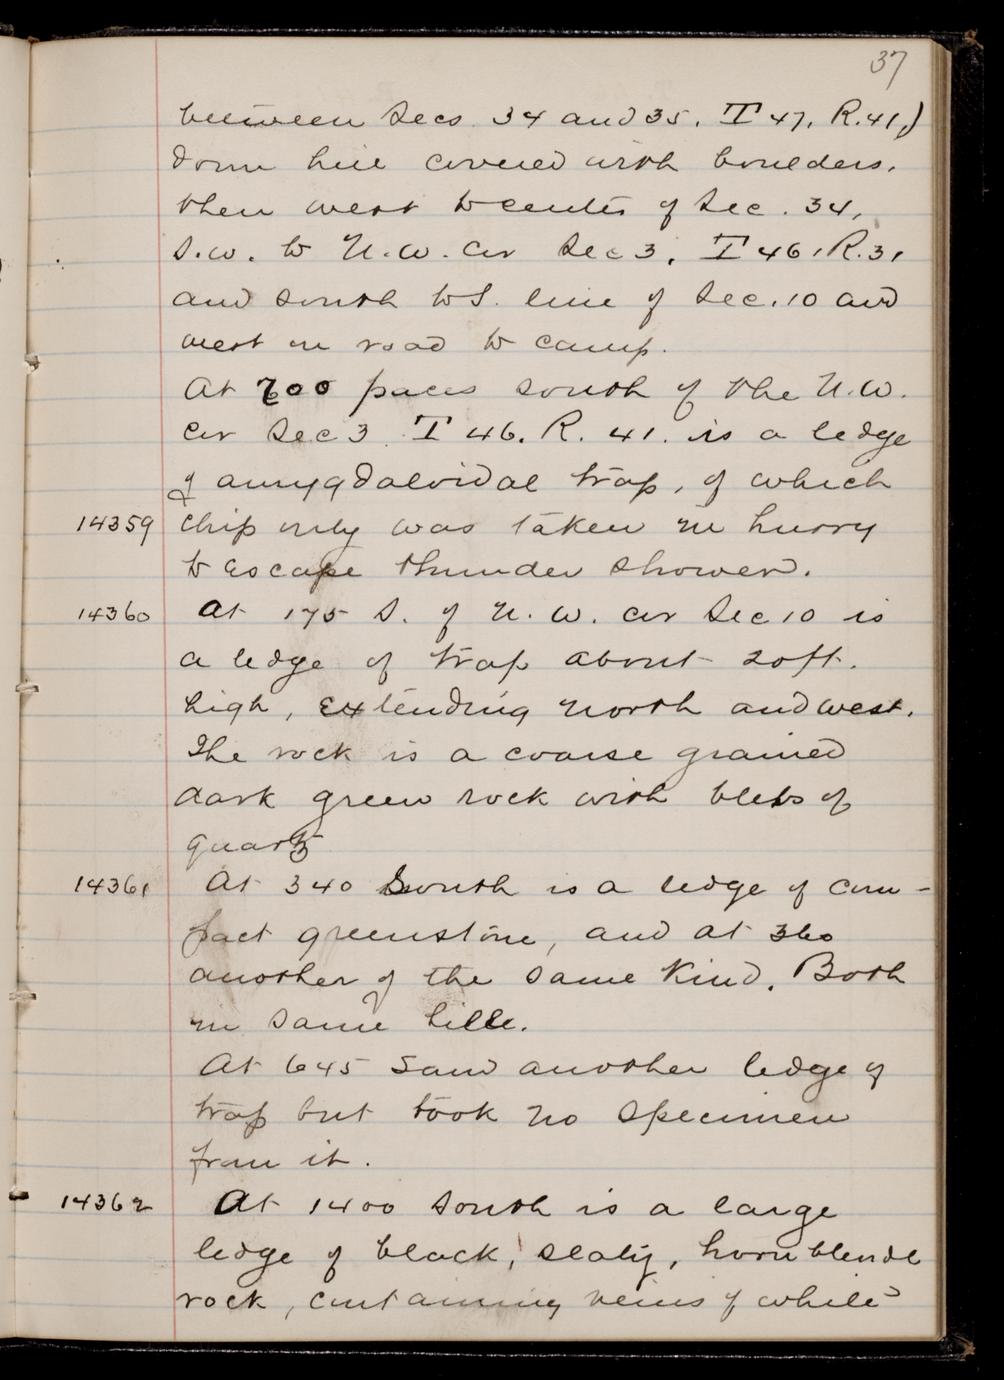 37
between Secs. 34 and 35. T 47. R. 41,)
down hill covered with boulders.
then west to center of Sec. 34,
S.W. to N.W. cor Sec 3, T 46, R. 31
and south to S. line of Sec. 10 and
west on road to camp.
At 700 paces south of the N.W.
cor Sec 3 T 46. R. 41. is a ledge
of amygdaloidal trap, of which
14359 chip only was taken in hurry
to escape thunder shower.
14360 At 175 S. of N. W. cor Sec 10 is
a ledge of trap about 20 ft.
high, extending north and west.
The rock is a coarse grained
dark green rock with blebs of
quartz
14361 At 340 South is a ledge of com-
pact greenstone, and at 360
another of the same kind. Both
in same hill.
At 645 Saw another ledge of
trap but took no specimen
from it.
14362 At 1400 South is a large
ledge of black, slaty, hornblende
rock, containing veins of white